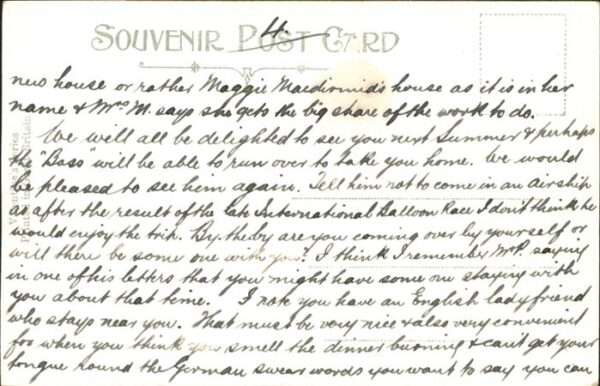 4
SOUVENIR POST CARD
new house or rather Maggie Macdirmid's house as it is in her
name & Mrs M. says she gets the big share of the work to do.
We will all be delighted to see you next Summer & perhaps
the Boss" will be able to run over to take you home. We would
be pleased to see him again. Tell him not to come in an airship
as after the result of the late International Balloon Race I don't think he
would enjoy the trip. By the by are you coming over by yourself or
will there be some one with you? I think I remember Mr P. saying
in one of his letters that you might have some one staying with
you about that time. I note you have an English lady friend
who stays near you. That must be very nice & also very convenient
for when you think you smell the dinner burning & can't get your
tongue round the German swear words you want to say you can